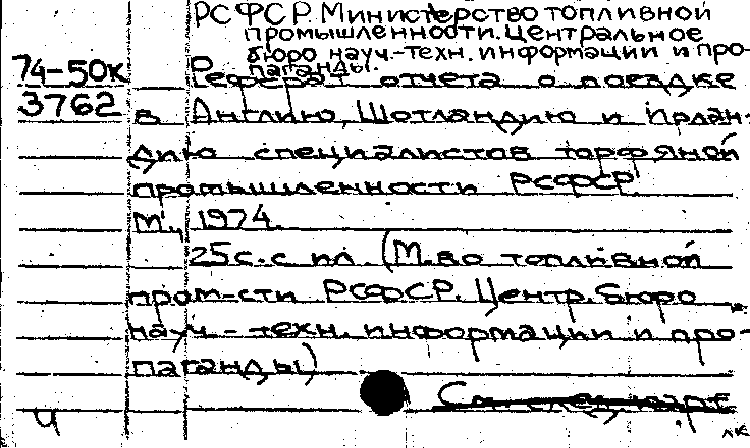 РСФСР. Министерство топливной
промышленности. Центральное
бюро науч.-техн. информации и про-
паганды.
74-50к Реферат отчета о поездке
3762 в Англию, Шотландию и Ирлан-
дию специалистов торфяной
промышленности РСФСР.
М., 1974.
25с. с ил. (М-во топливной
пром-сти РСФСР. Центр. бюро
науч.-техн. информации и про-
паганды)
См. след. карт.
ч
лк